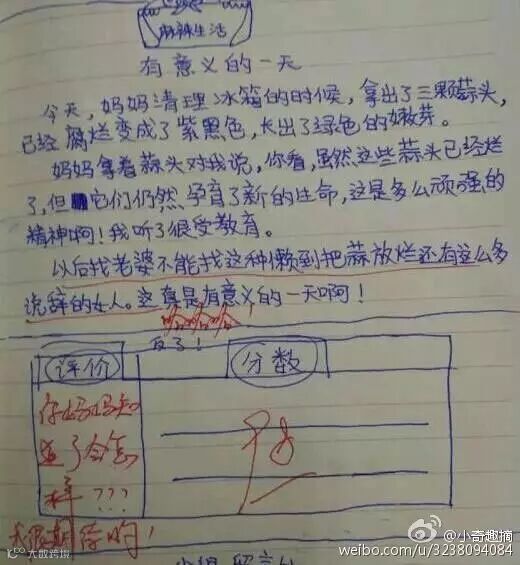 麻辣生活
有意义的一天
今天，妈妈清理冰箱的时候，拿出了三颗蒜头，
已经腐烂变成了紫黑色，长出了绿色的嫩芽。
妈妈拿着蒜头对我说，你看，虽然这些蒜头已经烂
了，但它们仍然孕育了新的生命，这是多么顽强的
精神啊！我听了很受教育。
以后找老婆不能找这种懒到把蒜放烂还有这么多
说辞的女人。这真是有意义的一天啊！
哈哈哈哈
评价
分数
你妈妈知
道了会怎
样？？？
我很期待哟！
大数跨境
@小奇趣摘
weibo.com/u/3238094084